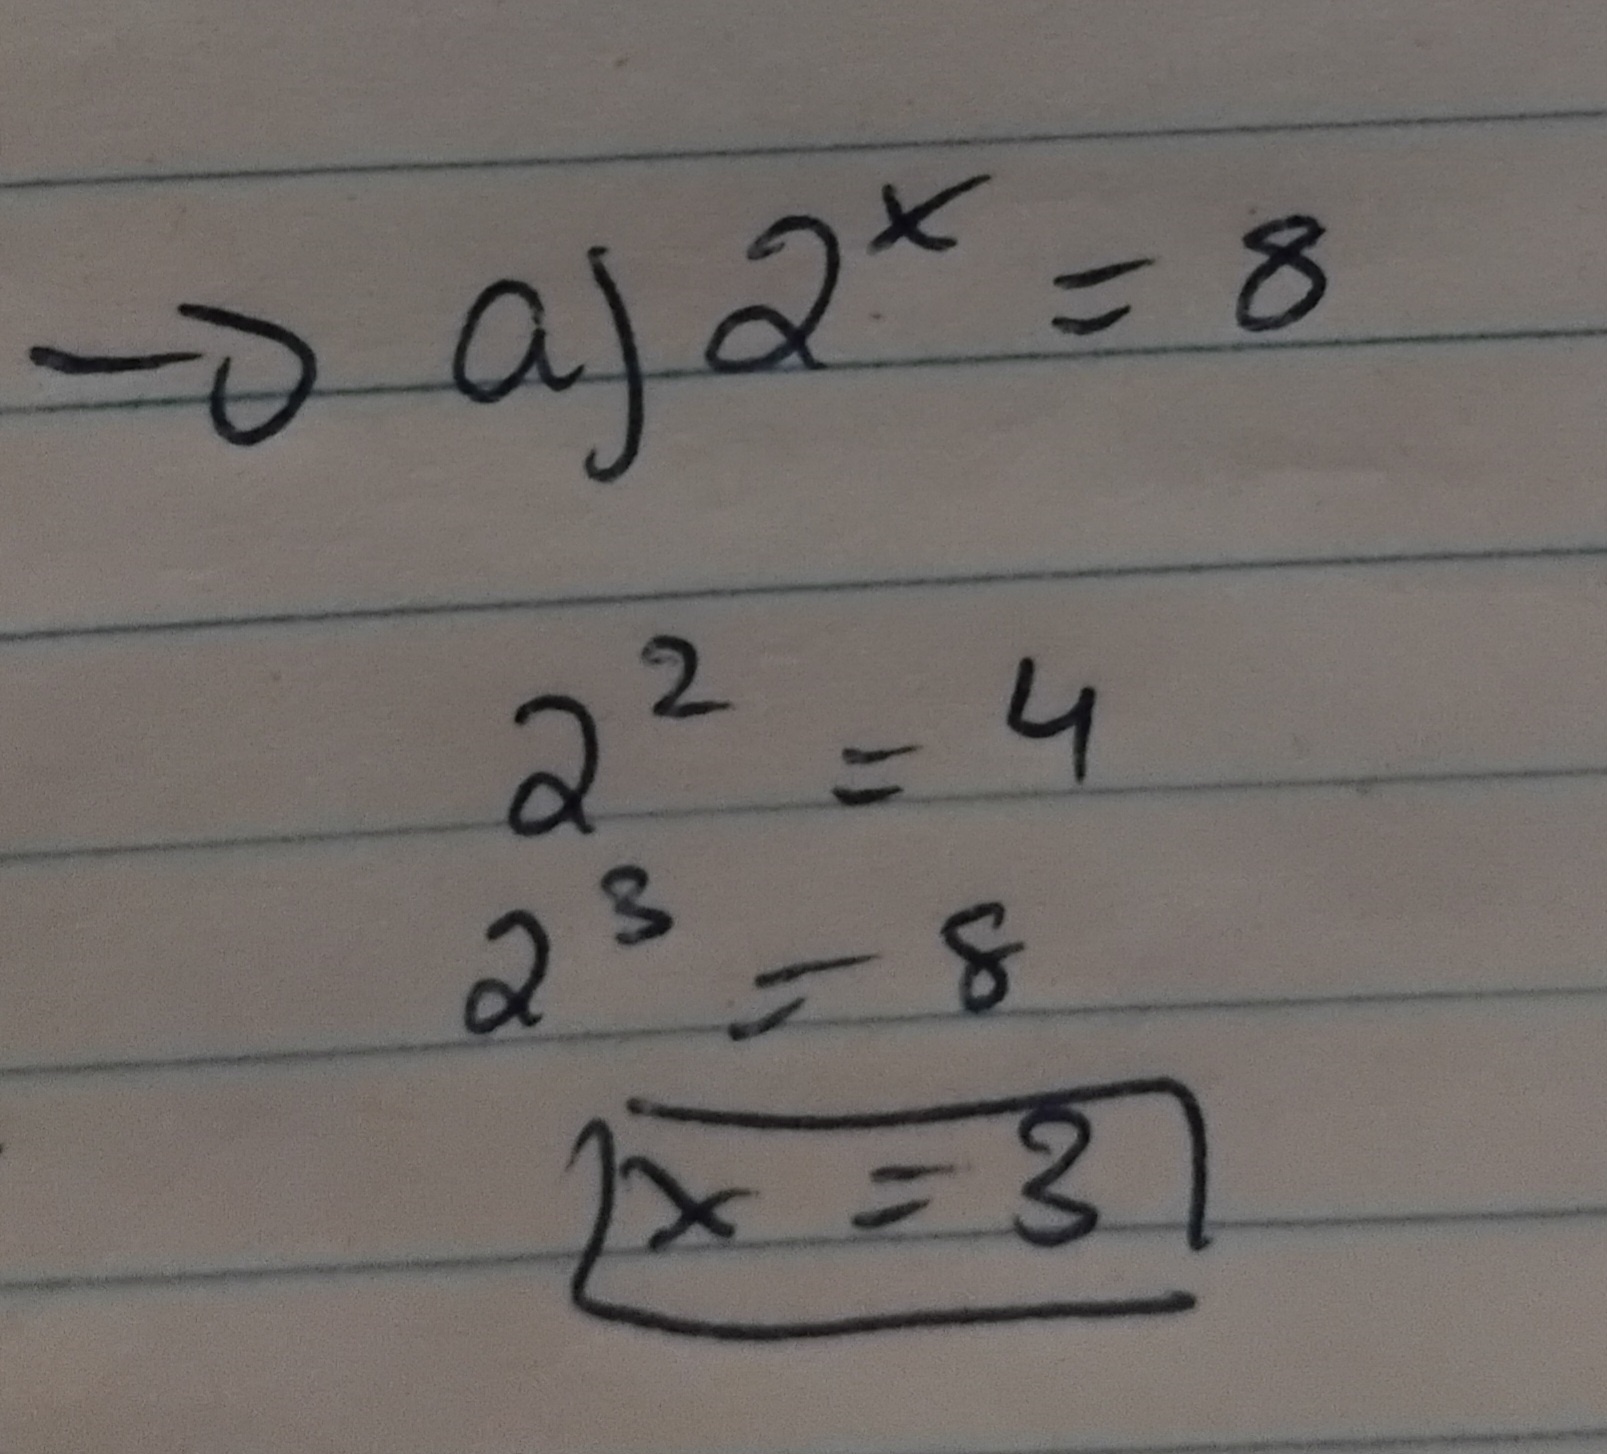 → a) 2^x = 8
2^2 = 4
2^3 = 8
x = 3